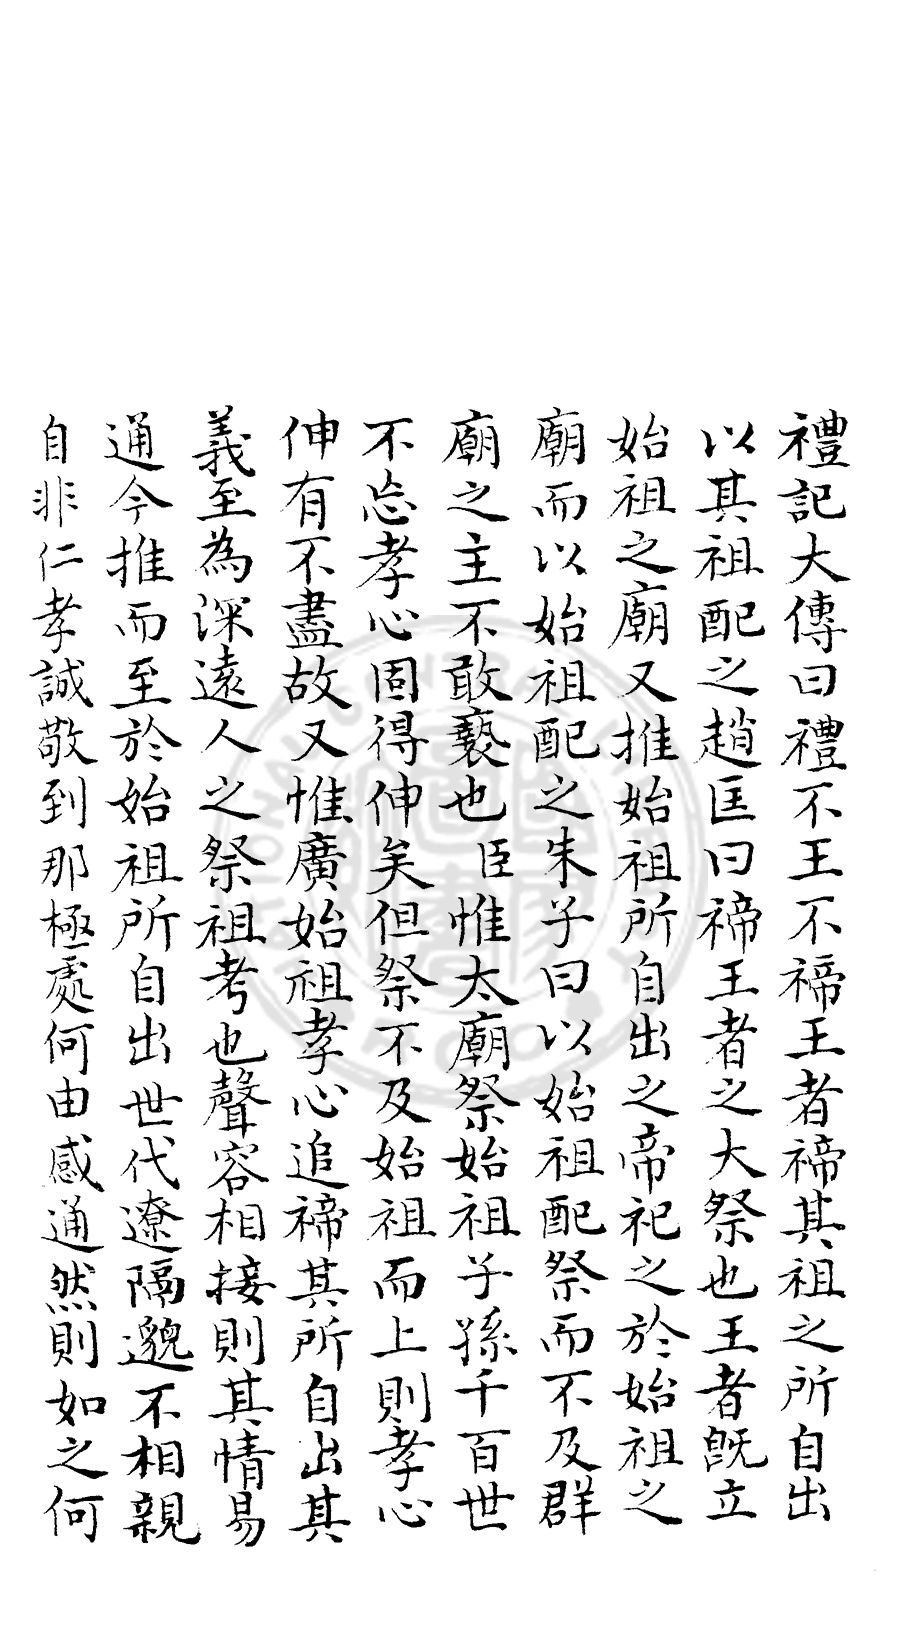 禮記大傳曰禮不王不禘王者禘其祖之所自出
以其祖配之趙匡曰禘王者之大祭也王者旣立
始祖之廟又推始祖所自出之帝祀之於始祖之
廟而以始祖配之朱子曰以始祖配祭而不及群
廟之主不敢褻也臣惟太廟祭始祖子孫千百世
不忘孝心固得伸矣但祭不及始祖而上則孝心
伸有不盡故又惟廣始祖孝心追禘其所自出其
義至為深遠人之祭祖考也聲容相接則其情易
通今推而至於始祖所自出世代遼隔邈不相親
自非仁孝誠敬到那極處何由感通然則如之何